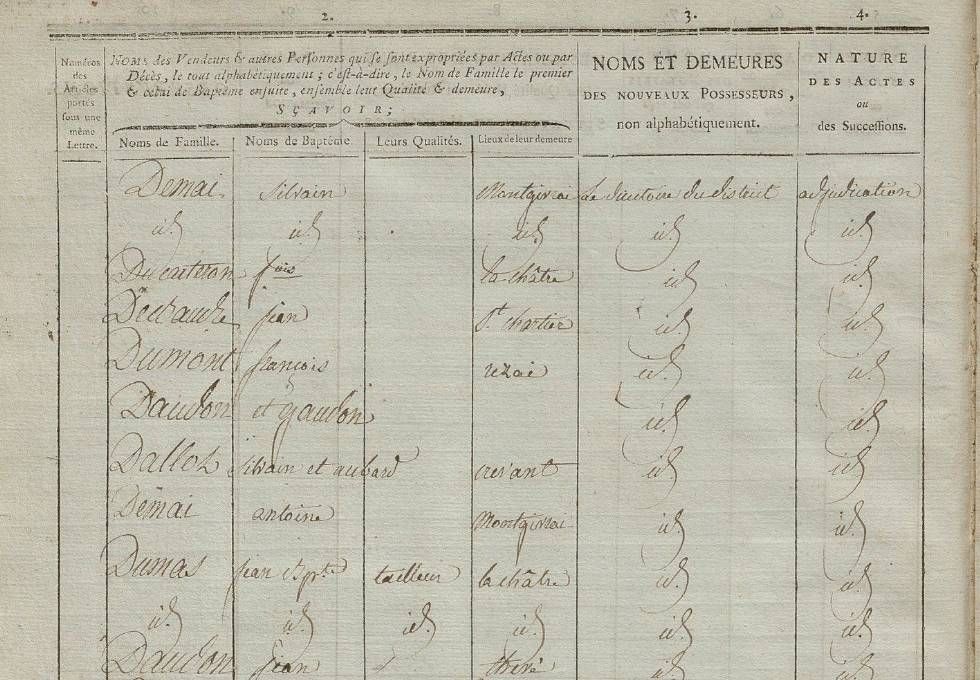 2.
3.
4.
Numéros
des
Articles
portés
sous une
même
Lettre.
NOMS des Vendeurs & autres Personnes qui se sont expropriées par Actes ou par
Décès, le tout alphabétiquement; c'est-à-dire, le Nom de Famille le premier
& celui de Baptême ensuite, ensemble leur Qualité & demeure,
SÇAVOIR;
Noms de Famille. Noms de Baptême. Leurs Qualités. Lieux de leur demeure
NOMS ET DEMEURES
DES NOUVEAUX POSSESSEURS,
non alphabétiquement.
NATURE
DES ACTES
ou
des Successions.
Demai Silvain Montgivrai le directoire du district adjudication
id. id. id. id. id.
la châtre id. id.
jean St. chartier id. id.
Dumont françois id. id.
Daudon et gaudon id. id.
Dallot Silvain et aubard cresant id. id.
Demai antoine Montgivrai id. id.
Dumas jean Bpte tailleur la châtre id. id.
id. id. id. id. id. id.
Daudon jean id. id.